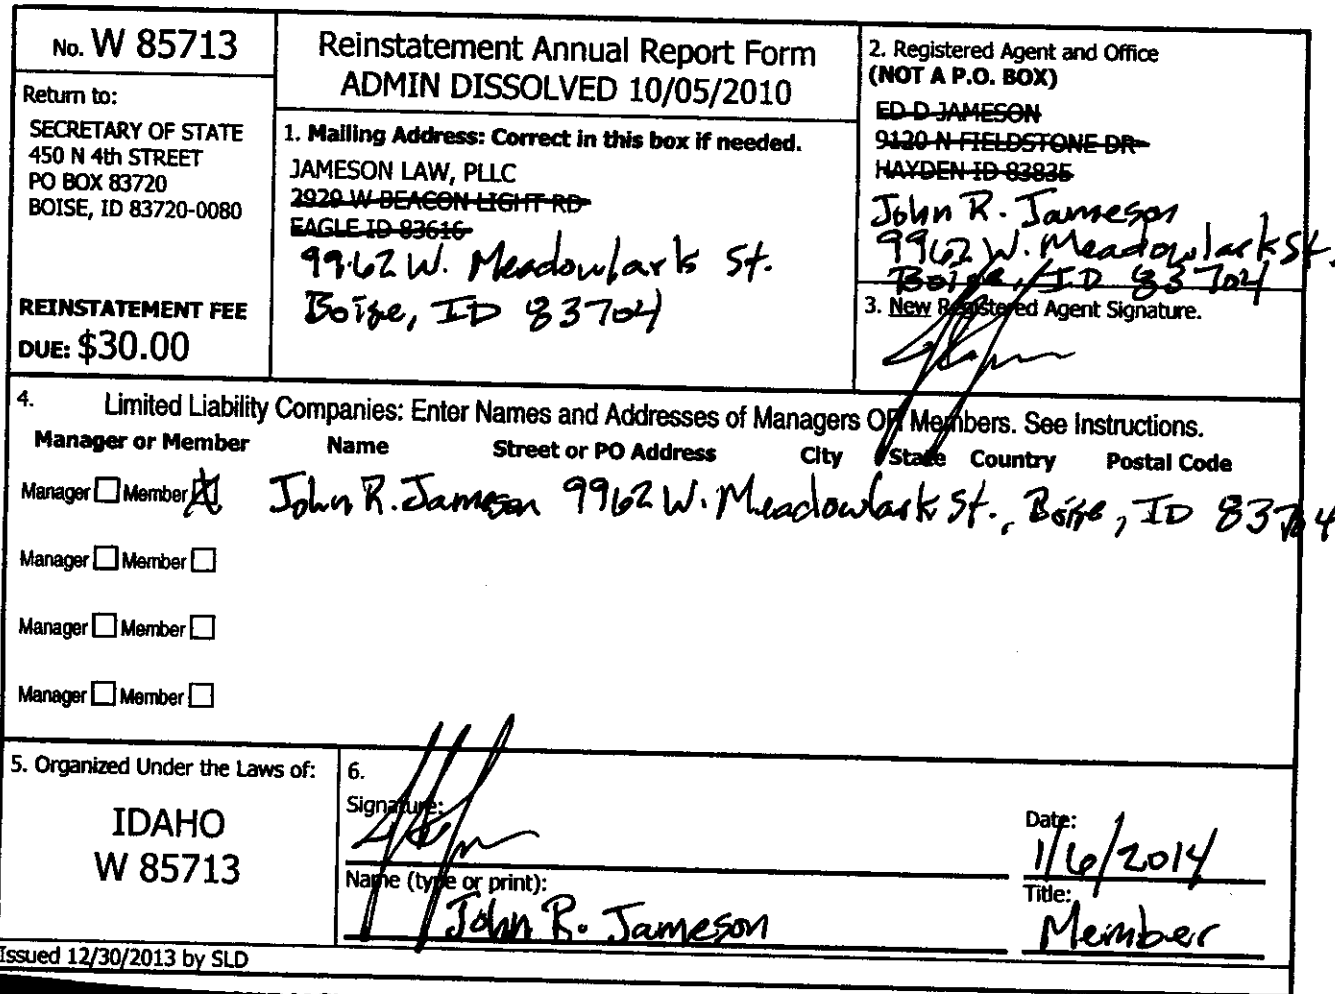 No. W 85713
Return to:
SECRETARY OF STATE
450 N 4th STREET
PO BOX 83720
BOISE, ID 83720-0080
REINSTATEMENT FEE
DUE: $30.00
Reinstatement Annual Report Form
ADMIN DISSOLVED 10/05/2010
1. Mailing Address: Correct in this box if needed.
JAMESON LAW, PLLC
2929 W BEACON LIGHT RD
EAGLE ID 83616
9962 W. Meadowlark St.
Boise, ID 83704
2. Registered Agent and Office
(NOT A P.O. BOX)
ED D JAMESON
9120 N FIELDSTONE DR
HAYDEN ID 83835
John R. Jameson
9962 W. Meadowlark St.
Boise, ID 83704
3. New Registered Agent Signature.
4. Limited Liability Companies: Enter Names and Addresses of Managers OR Members. See Instructions.
Manager or Member Name Street or PO Address City State Country Postal Code
Manager Member John R. Jameson 9962 W. Meadowlark St., Boise, ID 83704
Manager Member
Manager Member
Manager Member
5. Organized Under the Laws of:
IDAHO
W 85713
6.
Signature:
Date:
1/6/2014
Name (type or print):
John R. Jameson
Title:
Member
Issued 12/30/2013 by SLD